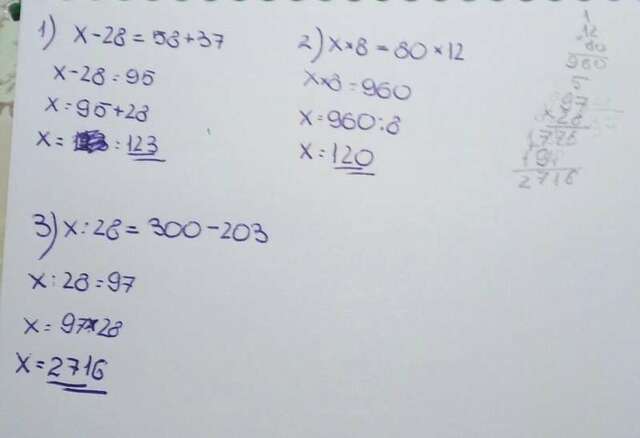 1) x-28=58+37
x-28=95
x=95+28
x= : 123
2) x×8=80×12
x×8=960
x=960:8
x=120
3) x:28=300-203
x:28=97
x=97×28
x=2716
1
12
80
960
5
97
×28
776
194
2716